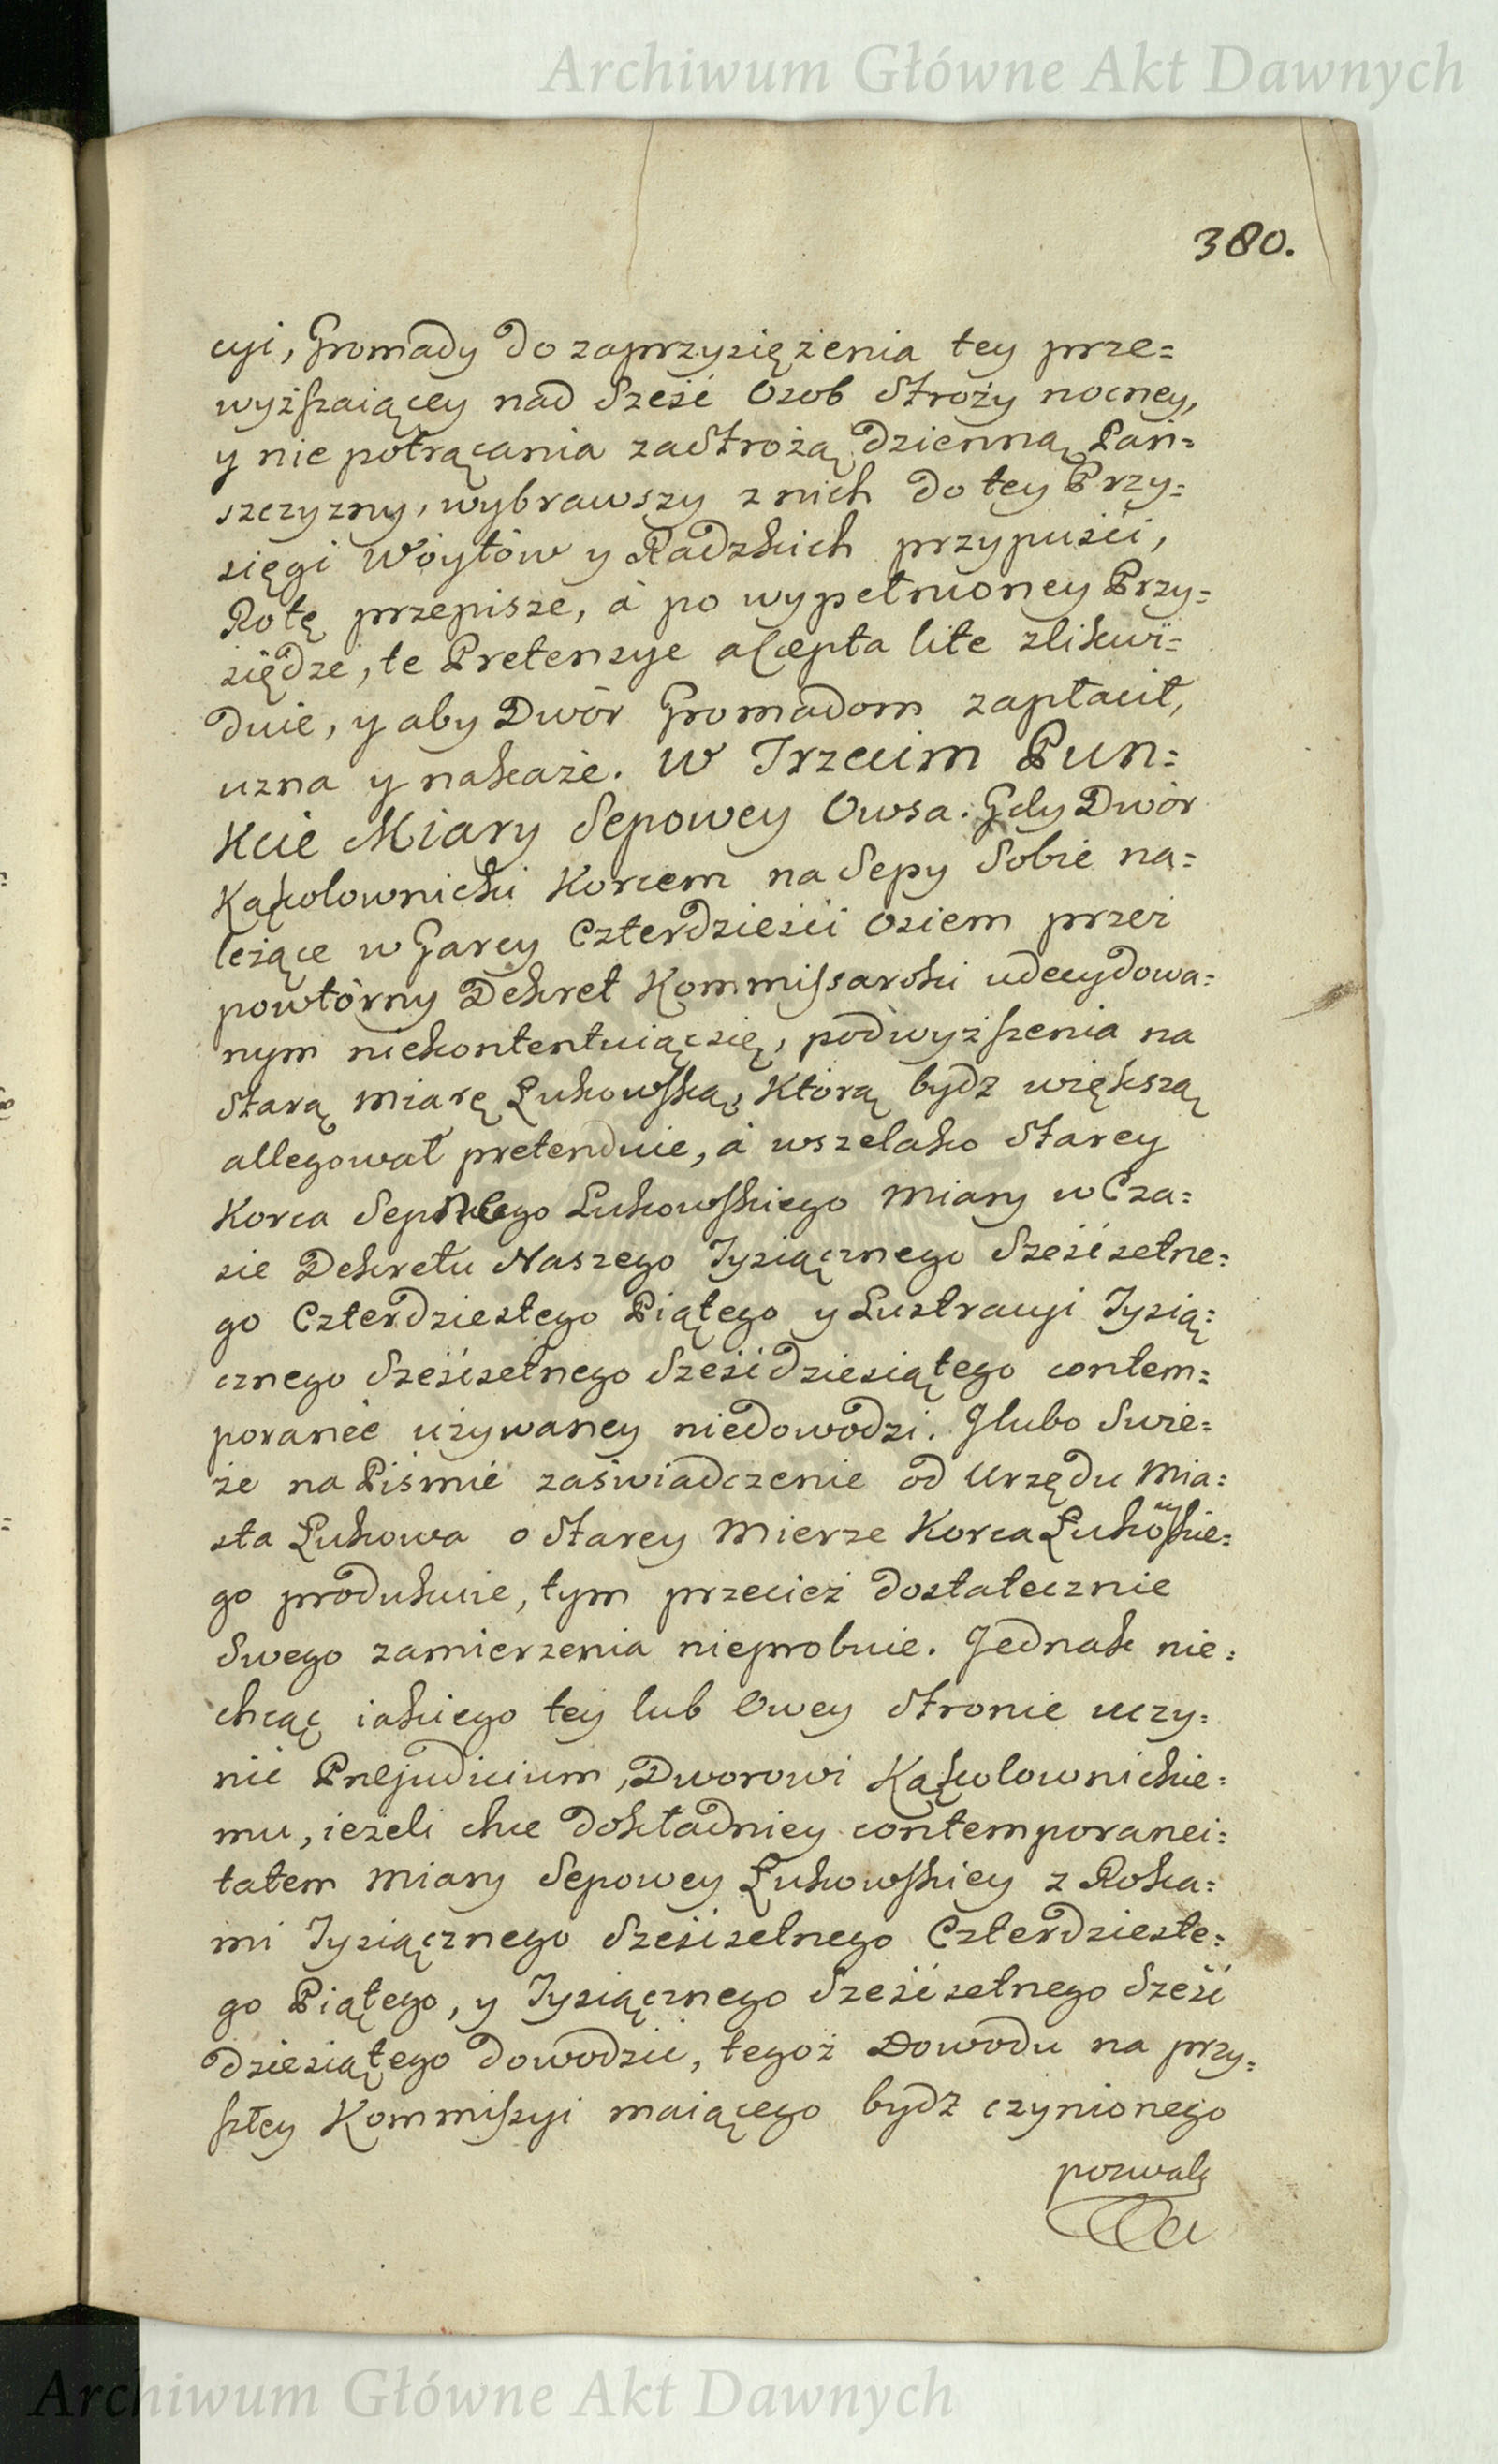 Archiwum Główne Akt Dawnych
380.
cyi, Gromady do zaprzysiężenia tey prze=
wyższaiącey nad Sześć Osob Stroży nocney,
y nie potrącania za Strożą dzienną Pań=
szczyzny, wybrawszy z nich do tey Przy=
sięgi Woytów y Radzkich przypuści,
Rotę przepisze, á po wypełnioney Przy=
siędze, te Pretensye accepta lite zlikwi=
duie, y aby Dwór Gromadom zapłacił,
uzna y nakaże. W Trzecim Pun=
kcie Miary Sepowey Owsa. Gdy Dwór
Kąkolownicki Korcem na Sepy Sobie na=
leżące w Garcy Czterdzieści Osiem przez
powtórny Dekret Kommissarski udecydowa=
nym niekontentuiąc się, podwyższenia na
Starą Miarę Łukowską, Którą bydz większą
allegował pretenduie, á wszelako Starey
Korca Sepowego Łukowskiego Miary w Cza=
sie Dekretu Naszego Tysiącznego Sześćsetne=
go Czterdziestego Piątego y Lustracyi Tysią=
cznego Sześćsetnego Sześćdziesiątego contem=
poraneè używaney niedowodzi. I lubo Swie=
że na Piśmie zaświadczenie od Urzędu Mia=
sta Łukowa o Starey Mierze Korca Łukowskie=
go produkuie, tym przecież dostatecznie
Swego zamierzenia nieprobuie. Jednak nie=
chcąc iakiego tey lub Owey Stronie uczy=
nić Prejudicium, Dworowi Kąkolownickie=
mu, ieżeli chce dokładniey contemporanei=
tatem Miary Sepowey Łukowskiey z Roka=
mi Tysiącznego Sześćsetnego Czterdzieste=
go Piątego, y Tysiącznego Sześćsetnego Sześć
dziesiątego dowodzić, tegoż Dowodu na przy=
szłey Kommiszyi maiącego bydz czynionego
pozwalą
Archiwum Główne Akt Dawnych